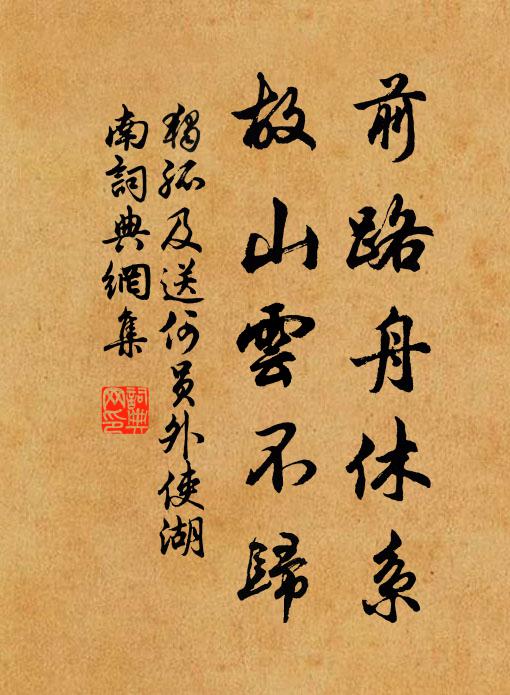 前路舟休系
故山雲不歸
獨孤及送何员外使湖
南詞典網集
詞典
网印